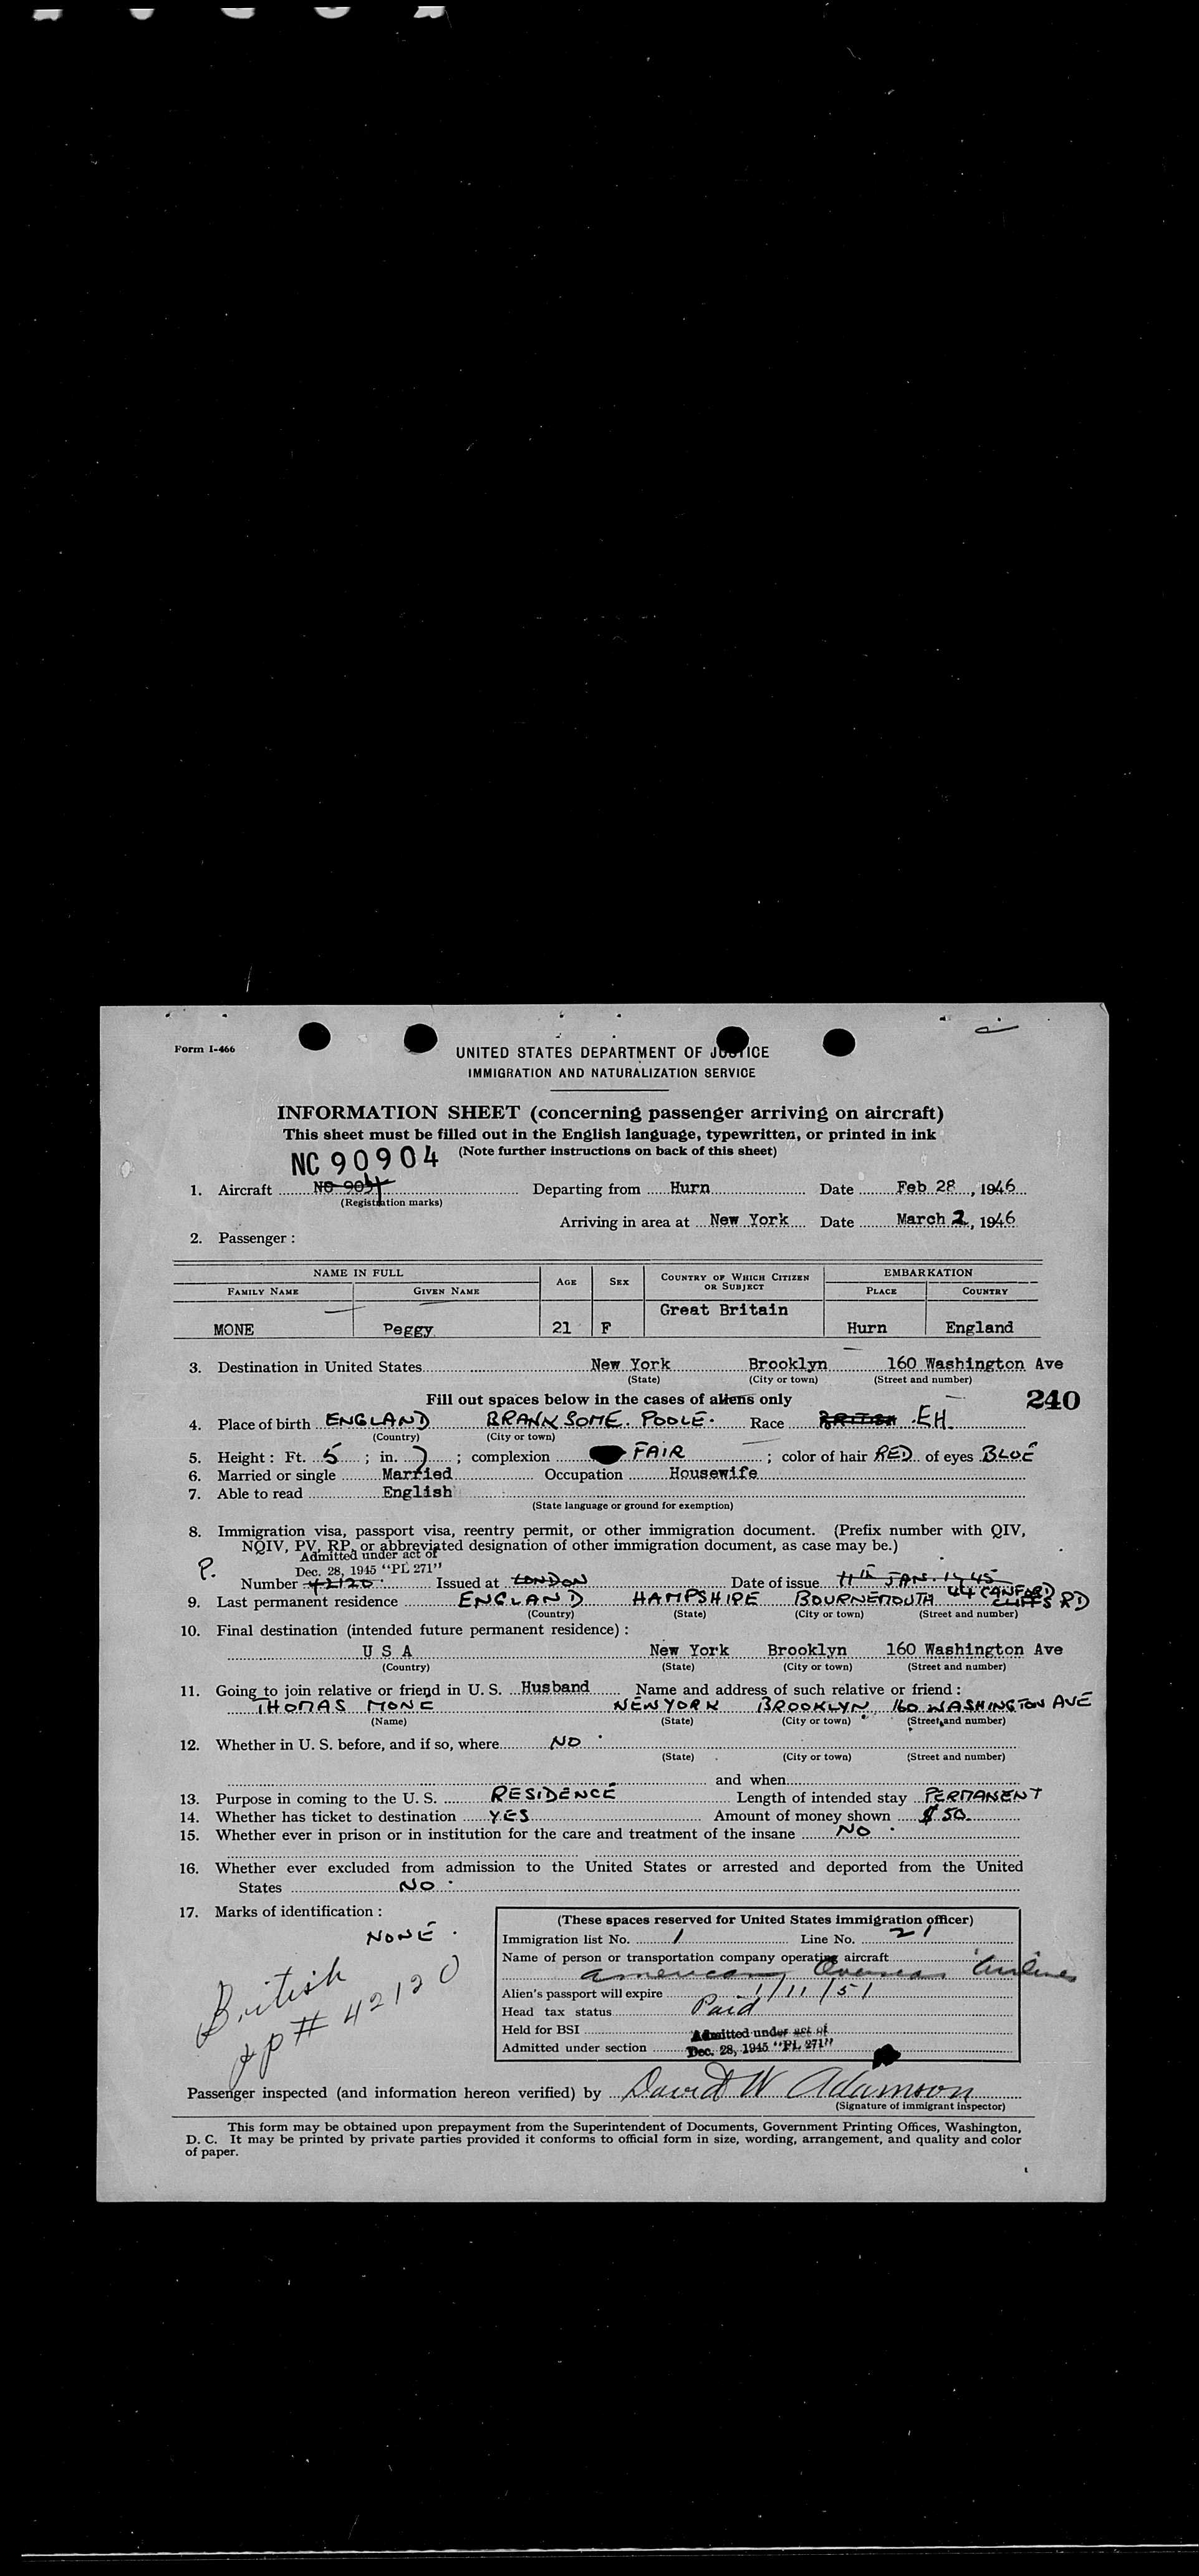 Form I-466
UNITED STATES DEPARTMENT OF JUSTICE
IMMIGRATION AND NATURALIZATION SERVICE
INFORMATION SHEET (concerning passenger arriving on aircraft)
This sheet must be filled out in the English language, typewritten, or printed in ink
(Note further instructions on back of this sheet)
NC 90904
1. Aircraft NC 904 Departing from Hurn Date Feb 28, 1946
(Registration marks)
Arriving in area at New York Date March 2, 1946
2. Passenger:
NAME IN FULL AGE SEX COUNTRY OF WHICH CITIZEN OR SUBJECT EMBARKATION
FAMILY NAME GIVEN NAME PLACE COUNTRY
Great Britain
MONE Peggy 21 F Hurn England
3. Destination in United States New York Brooklyn 160 Washington Ave
(State) (City or town) (Street and number)
Fill out spaces below in the cases of aliens only 240
4. Place of birth ENGLAND BRANKSOME. POOLE. Race BRITISH EH
(Country) (City or town)
5. Height: Ft. 5; in. 7; complexion FAIR; color of hair RED of eyes BLUE
6. Married or single Married Occupation Housewife
7. Able to read English
(State language or ground for exemption)
8. Immigration visa, passport visa, reentry permit, or other immigration document. (Prefix number with QIV,
NQIV, PV, RP, or abbreviated designation of other immigration document, as case may be.)
Admitted under act of
P. Dec. 28, 1945 "PL 271"
Number 42120 Issued at LONDON Date of issue 11th JAN. 1945
9. Last permanent residence ENGLAND HAMPSHIRE BOURNEMOUTH 44 CANFORD CLIFFS RD
(Country) (State) (City or town) (Street and number)
10. Final destination (intended future permanent residence):
U S A New York Brooklyn 160 Washington Ave
(Country) (State) (City or town) (Street and number)
11. Going to join relative or friend in U. S. Husband Name and address of such relative or friend:
THOMAS MONE NEW YORK BROOKLYN 160 WASHINGTON AVE
(Name) (State) (City or town) (Street and number)
12. Whether in U. S. before, and if so, where NO.
(State) (City or town) (Street and number)
and when
13. Purpose in coming to the U. S. RESIDENCE Length of intended stay PERMANENT
14. Whether has ticket to destination YES Amount of money shown $50
15. Whether ever in prison or in institution for the care and treatment of the insane NO.
16. Whether ever excluded from admission to the United States or arrested and deported from the United
States NO.
17. Marks of identification:
NONE.
British
pp# 42120
(These spaces reserved for United States immigration officer)
Immigration list No. 1 Line No. 21
Name of person or transportation company operating aircraft
American Overseas Airlines
Alien's passport will expire 1/11/51
Head tax status Paid
Held for BSI Admitted under act of
Admitted under section Dec. 28, 1945 "PL 271"
Passenger inspected (and information hereon verified) by David W Adamson
(Signature of immigrant inspector)
This form may be obtained upon prepayment from the Superintendent of Documents, Government Printing Offices, Washington,
D. C. It may be printed by private parties provided it conforms to official form in size, wording, arrangement, and quality and color
of paper.